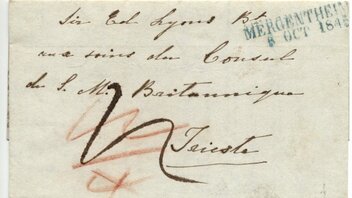 Sir Ed Lyons Bt
MERGENTHEIM
6 OCT 184
aux soins du Consul
de S. M. Britannique
Trieste